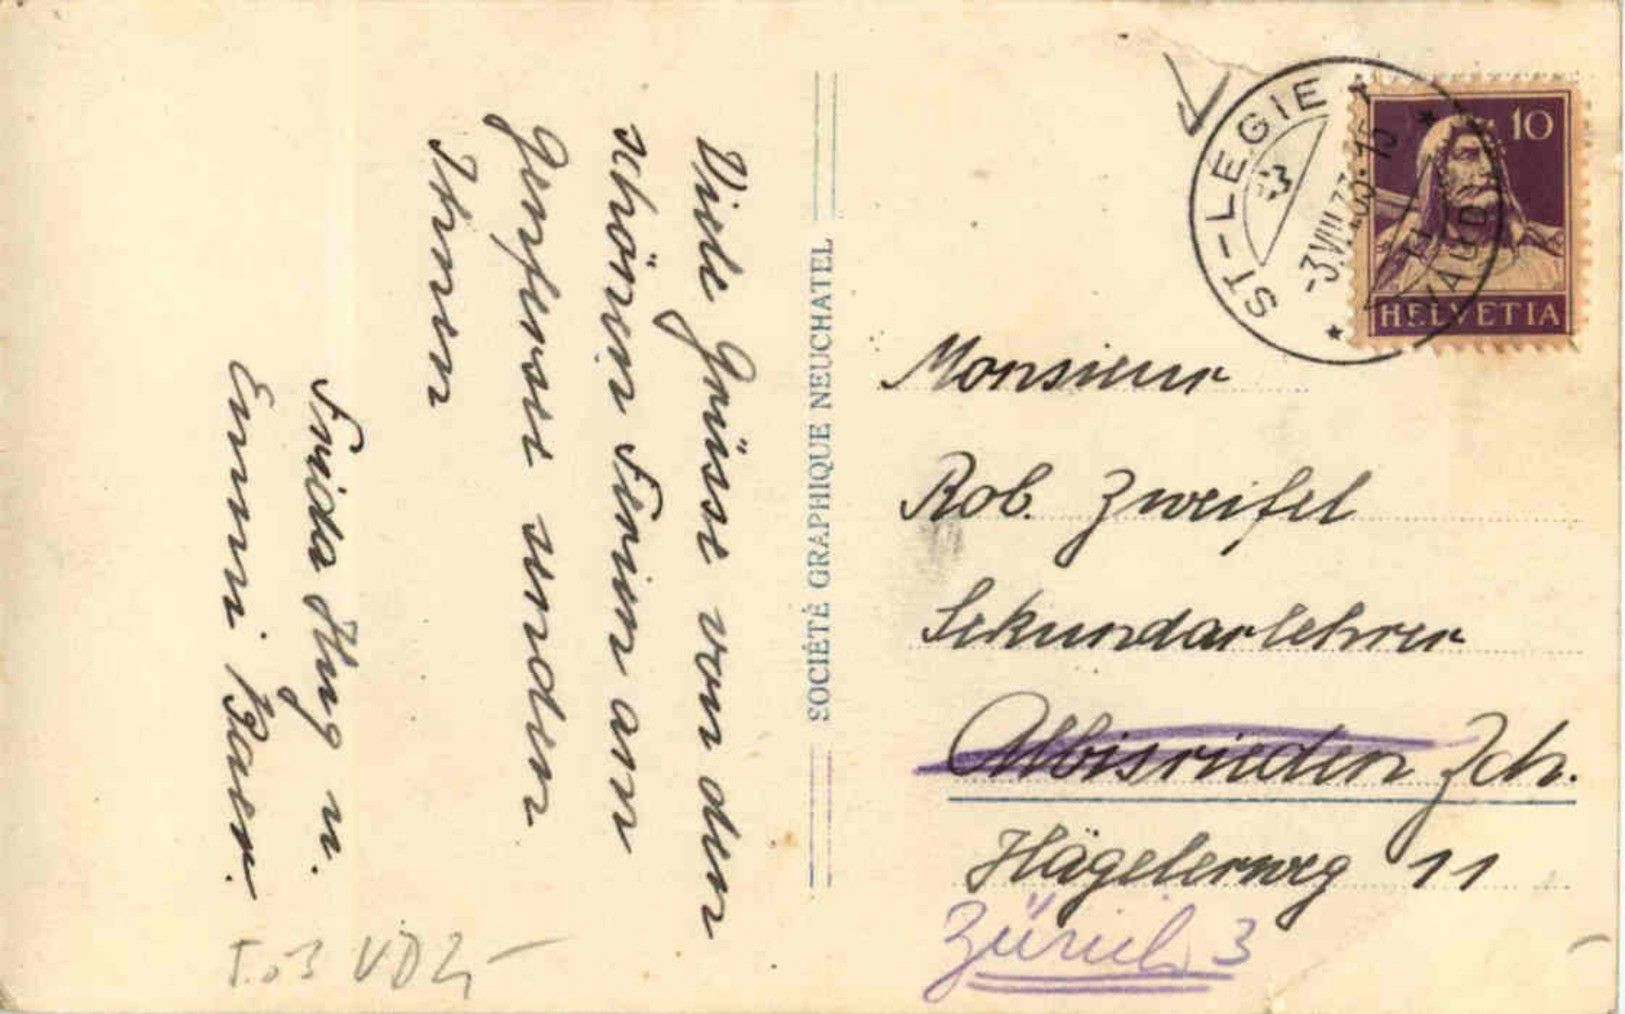 Viele Grüsse von den
schönen Ferien am
Genfersee senden
Ihnen
Frida Hug u.
Emmi Baer.
SOCIÉTÉ GRAPHIQUE NEUCHATEL
ST-LÉGIER
(VAUD)
10
HELVETIA
Monsieur
Rob. Zweifel
Sekundarlehrer
Albisrieden Zch.
Hägelerweg 11
Zürich 3